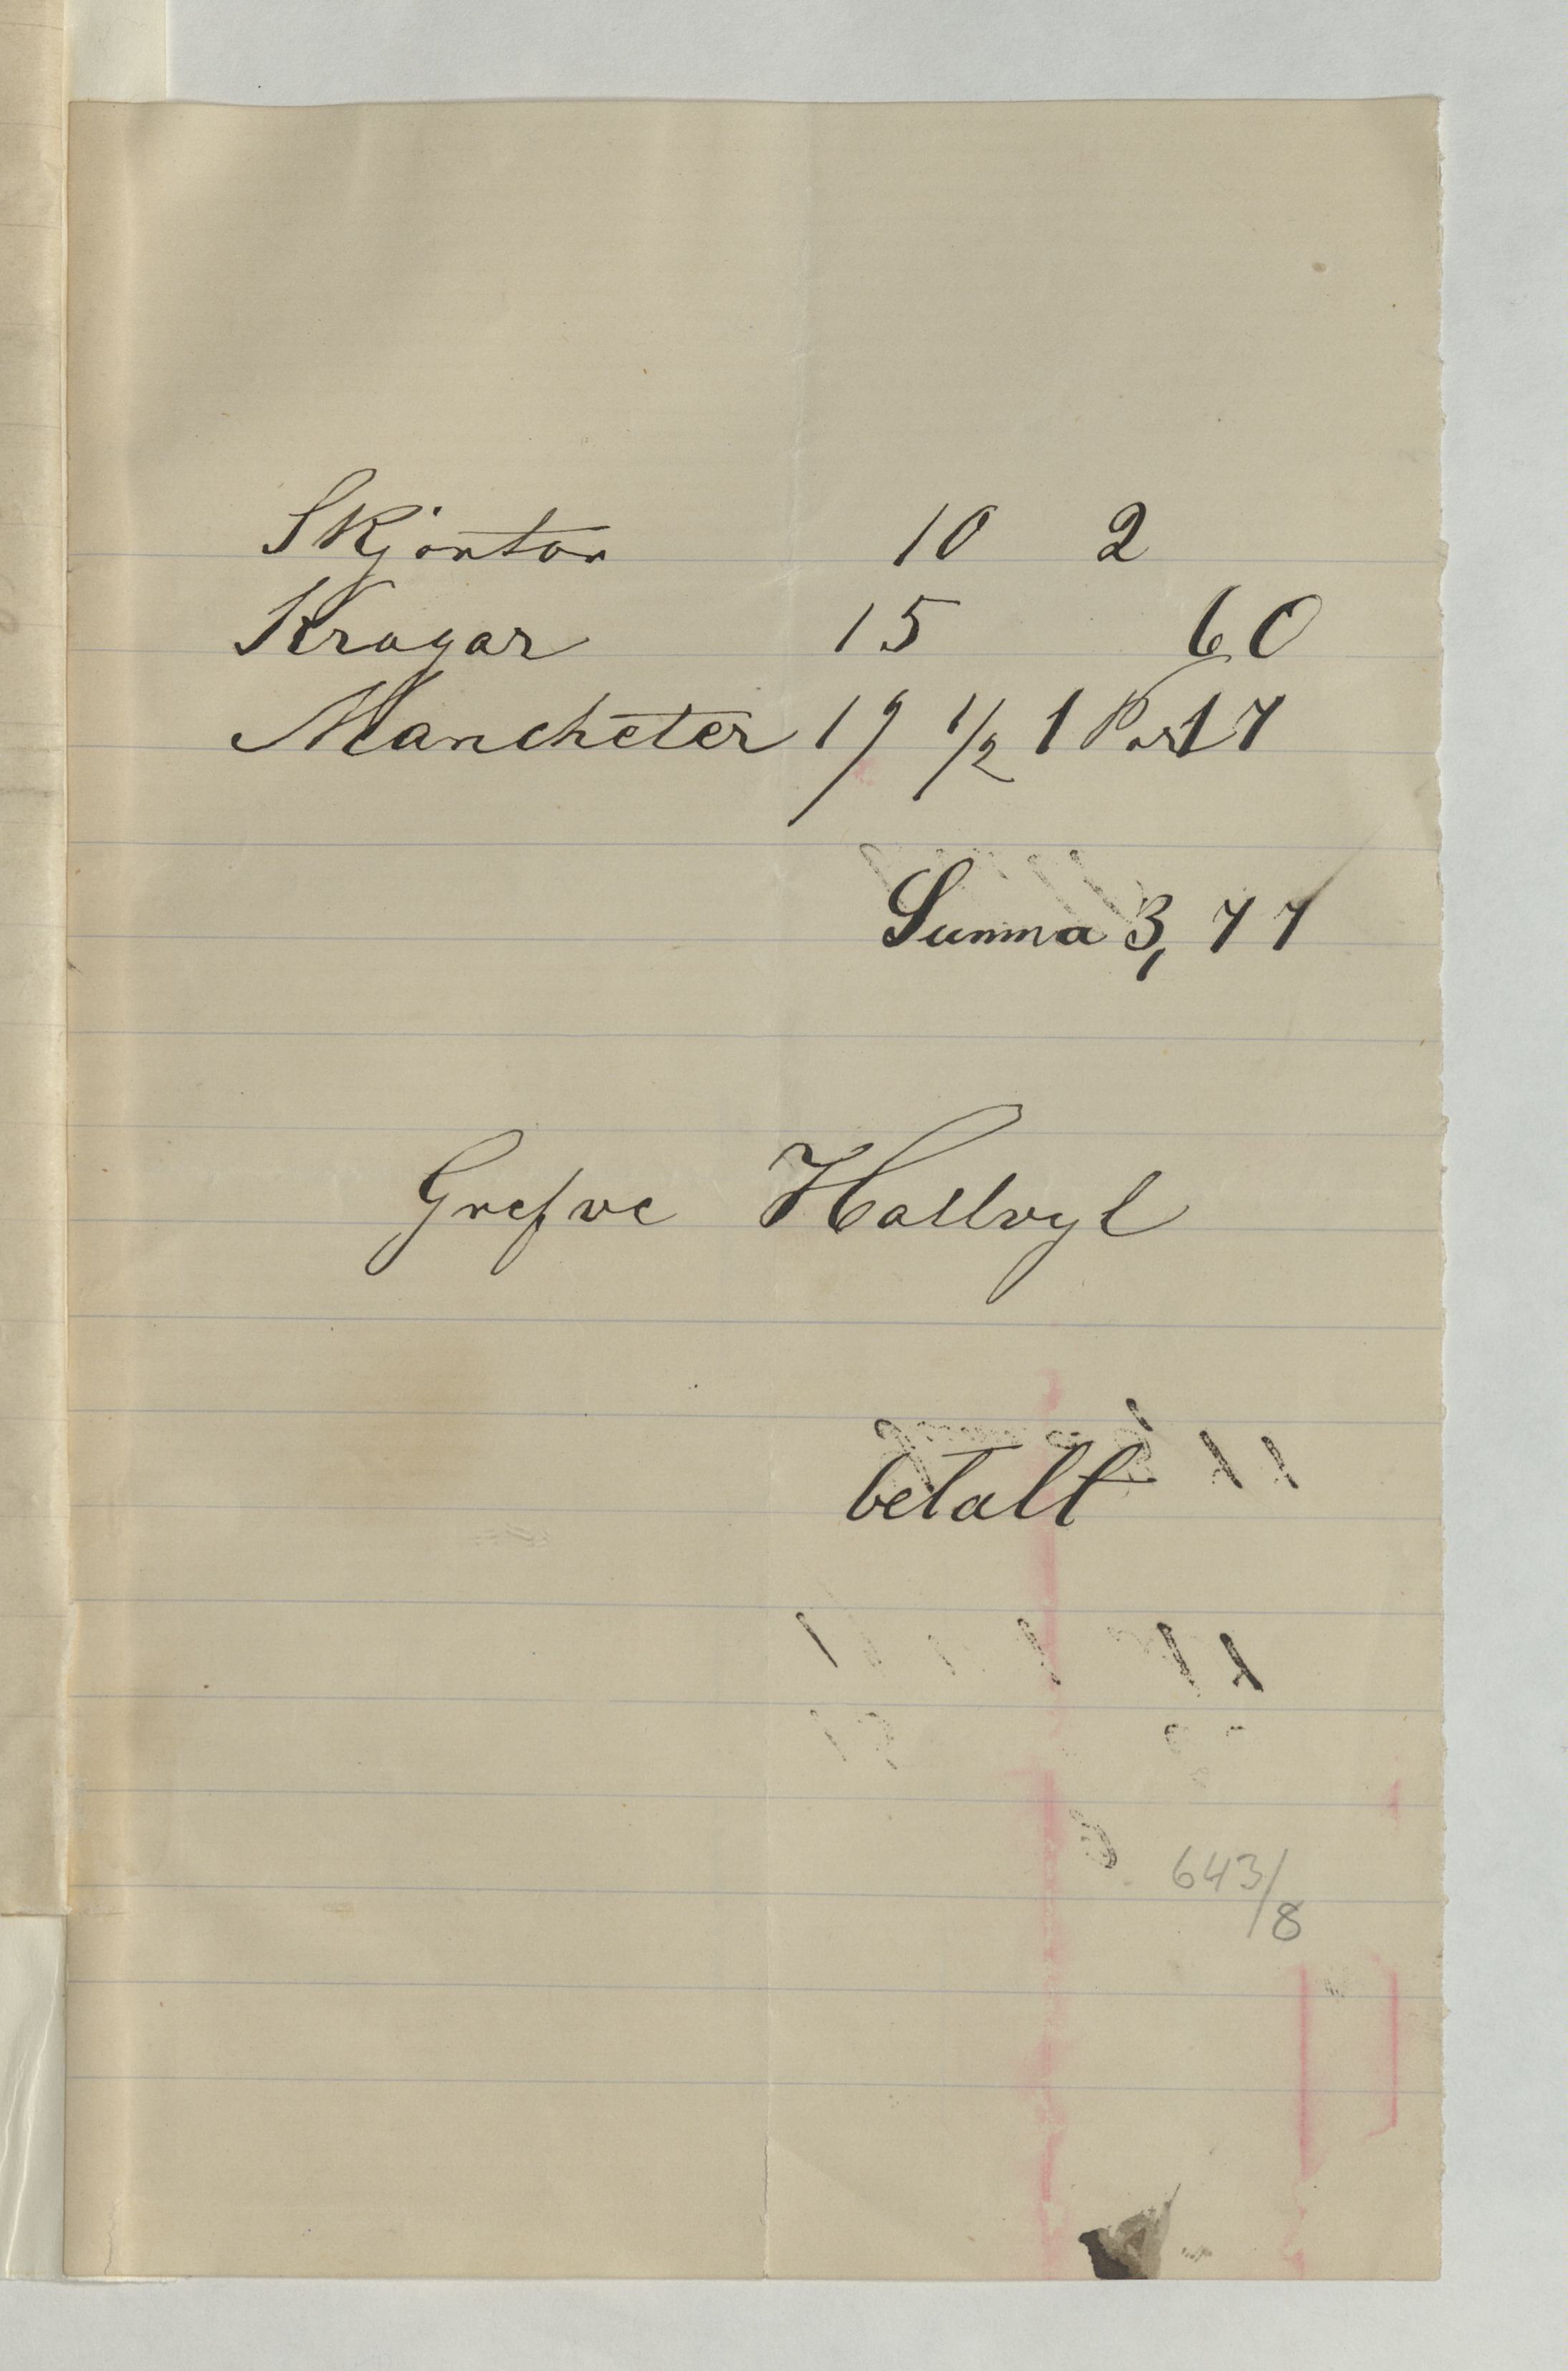 Skjortor 10 2
Kragar 15 60
Mancheter 19 1/2 1 Par 17
Summa 3,77
Grefve Hallvyl
betalt
643/8